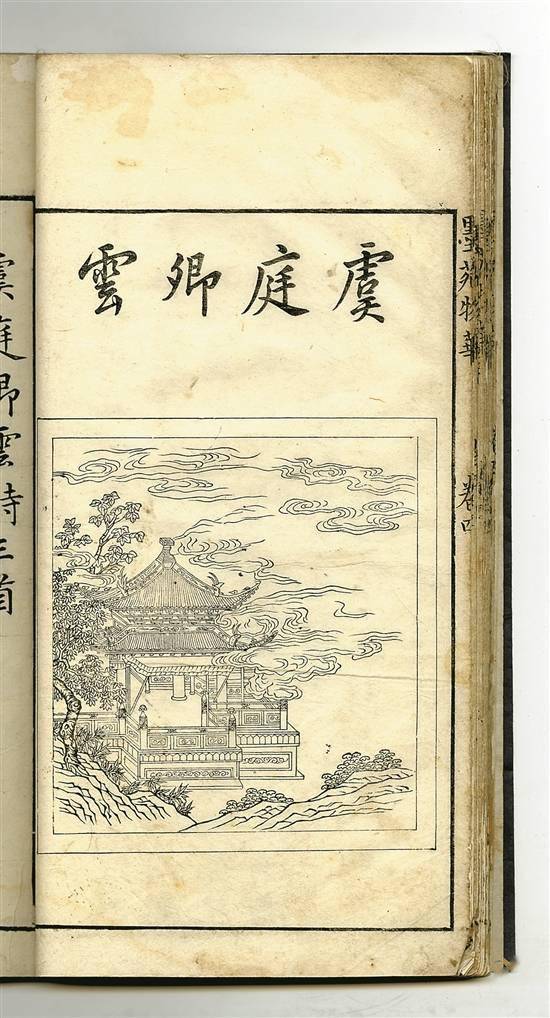 墨苑物華 卷四
虞庭卿雲
虞庭卿雲詩三首